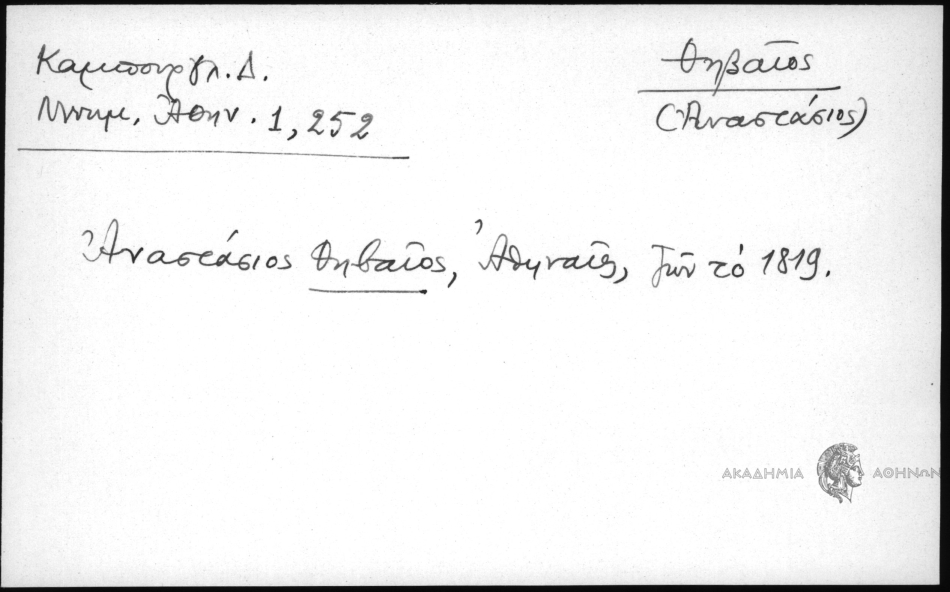 Καμπουρογλ. Δ.
Μνημ. Ἀθην. 1, 252
Θηβαῖος
(Ἀναστάσιος)
Ἀναστάσιος Θηβαῖος, Ἀθηναῖος, ζῶν τό 1819.
ΑΚΑΔΗΜΙΑ ΑΘΗΝΩΝ